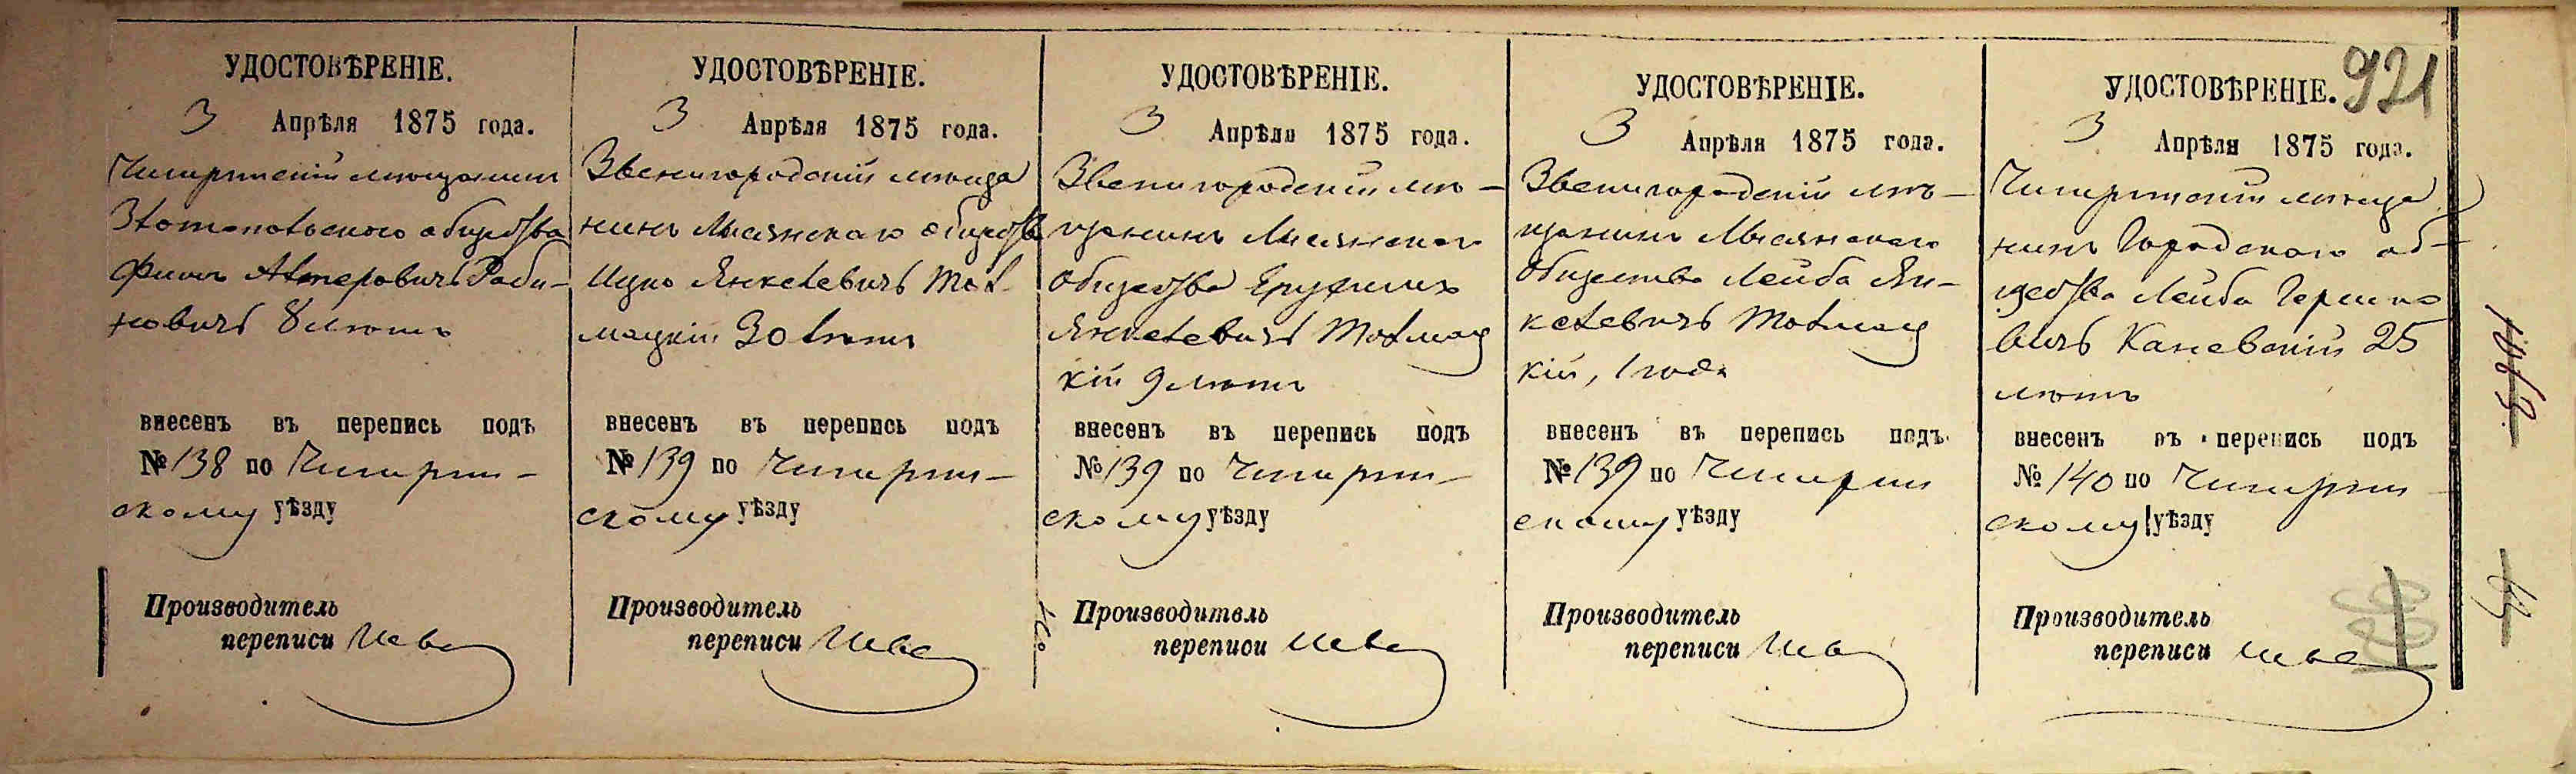 921
УДОСТОВѢРЕНІЕ.
3 Апрѣля 1875 года.
Чигиринскій мѣщанинъ
Златопольского общества
Фишъ Алтеровичъ Раби-
новичъ 8 лѣтъ
внесенъ въ перепись подъ
№ 138 по Чигирин-
скому уѣзду
Производитель
переписи
УДОСТОВѢРЕНІЕ.
3 Апрѣля 1875 года.
Звенигородскій мѣща
нинъ Лысянскаго общества
Ицко Янкелевичъ Тол-
мацкій 30 лѣтъ
внесенъ въ перепись подъ
№ 139 по Чигирин-
скому уѣзду
Производитель
переписи
УДОСТОВѢРЕНІЕ.
3 Апрѣля 1875 года.
Звенигородскій мѣ-
щанинъ Лысянского
общества Ерухимъ
Янкелевичъ Толмац
кій 9 лѣтъ
внесенъ въ перепись подъ
№ 139 по Чигирин-
скому уѣзду
Производитель
переписи
УДОСТОВѢРЕНІЕ.
3 Апрѣля 1875 года.
Звенигородскій мѣ-
щанинъ Лысянского
общества Лейба Ян-
келевичъ Толмац
кій, 1 года
внесенъ въ перепись подъ
№ 139 по Чигирин
скому уѣзду
Производитель
переписи
УДОСТОВѢРЕНІЕ.
3 Апрѣля 1875 года.
Чигиринскій мѣща
нинъ Городского об-
щества Лейба Гершко
вичъ Каневскій 25
лѣтъ
внесенъ въ перепись подъ
№ 140 по Чигирин
скому уѣзду
Производитель
переписи